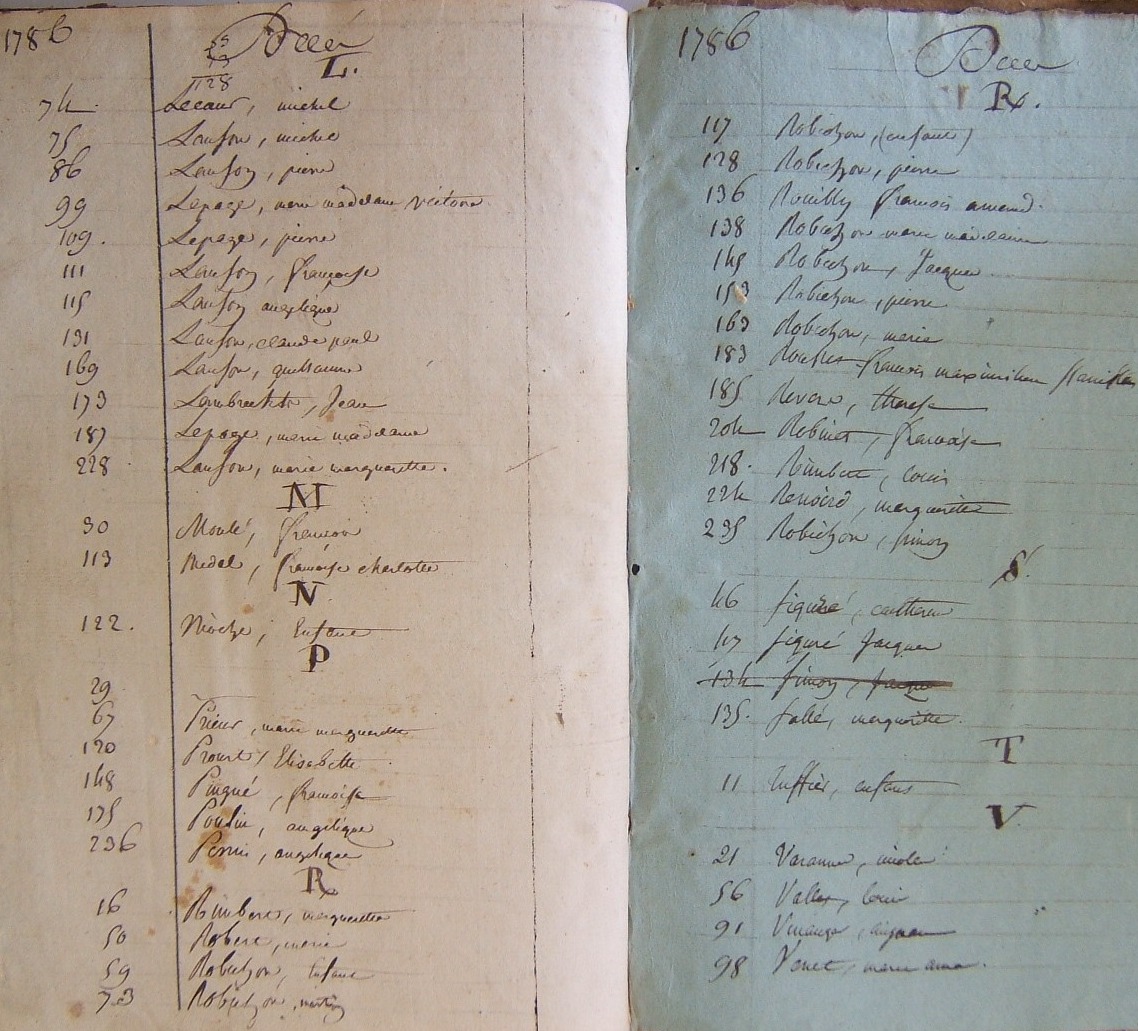 1786
Deces
L.
128
74. Lecour, michel
75 Lanson, michel
86 Lanson, pierre
99 Lepage, marie madelaine victoire
109. Lepage, pierre
111 Lanson, françoise
115 Lanson angelique
131 Lanson, claude paul
169 Lanson, guillaume
173 Lambrechts, Jean
187 Lepage, marie madelaine
228 Lanson, marie margueritte.
M
30 Moulé, francois
113 Medal, françoise charlotte
N
122. Nioche, Enfant
P
29
67 Prieur, marie marguerite
120 Proust, Elisabette
148 Pingué, françoise
175 Poulin, angelique
236 Perrin, angelique
R
16 Rimbert, margueritte
50 Robert, marie
59 Robichon, Enfant
73 Robichon, martin
1786
Deces
R.
117 Robichon, (enfant)
128 Robichon, pierre
136 Rouilly francois amand.
138 Robichon marie madelaine
145 Robichon, Jacques
153 Robichon, pierre
163 Robichon, marie
183 francois maximilien stanislas
185 Revere, therese
204 Robinet, françoise
218. Rimbert, louis
224 Renoird, marguerite
235 Robichon, simon
S.
46 siguré, catherine
47 siguré Jacques
134 simon, Jacques
135. sallé, marguerite.
T
11 Tuffier, enfant
V.
21 Varanne, nicole
56 Vallet, louis
91 aignan
98 Venet, marie anne.